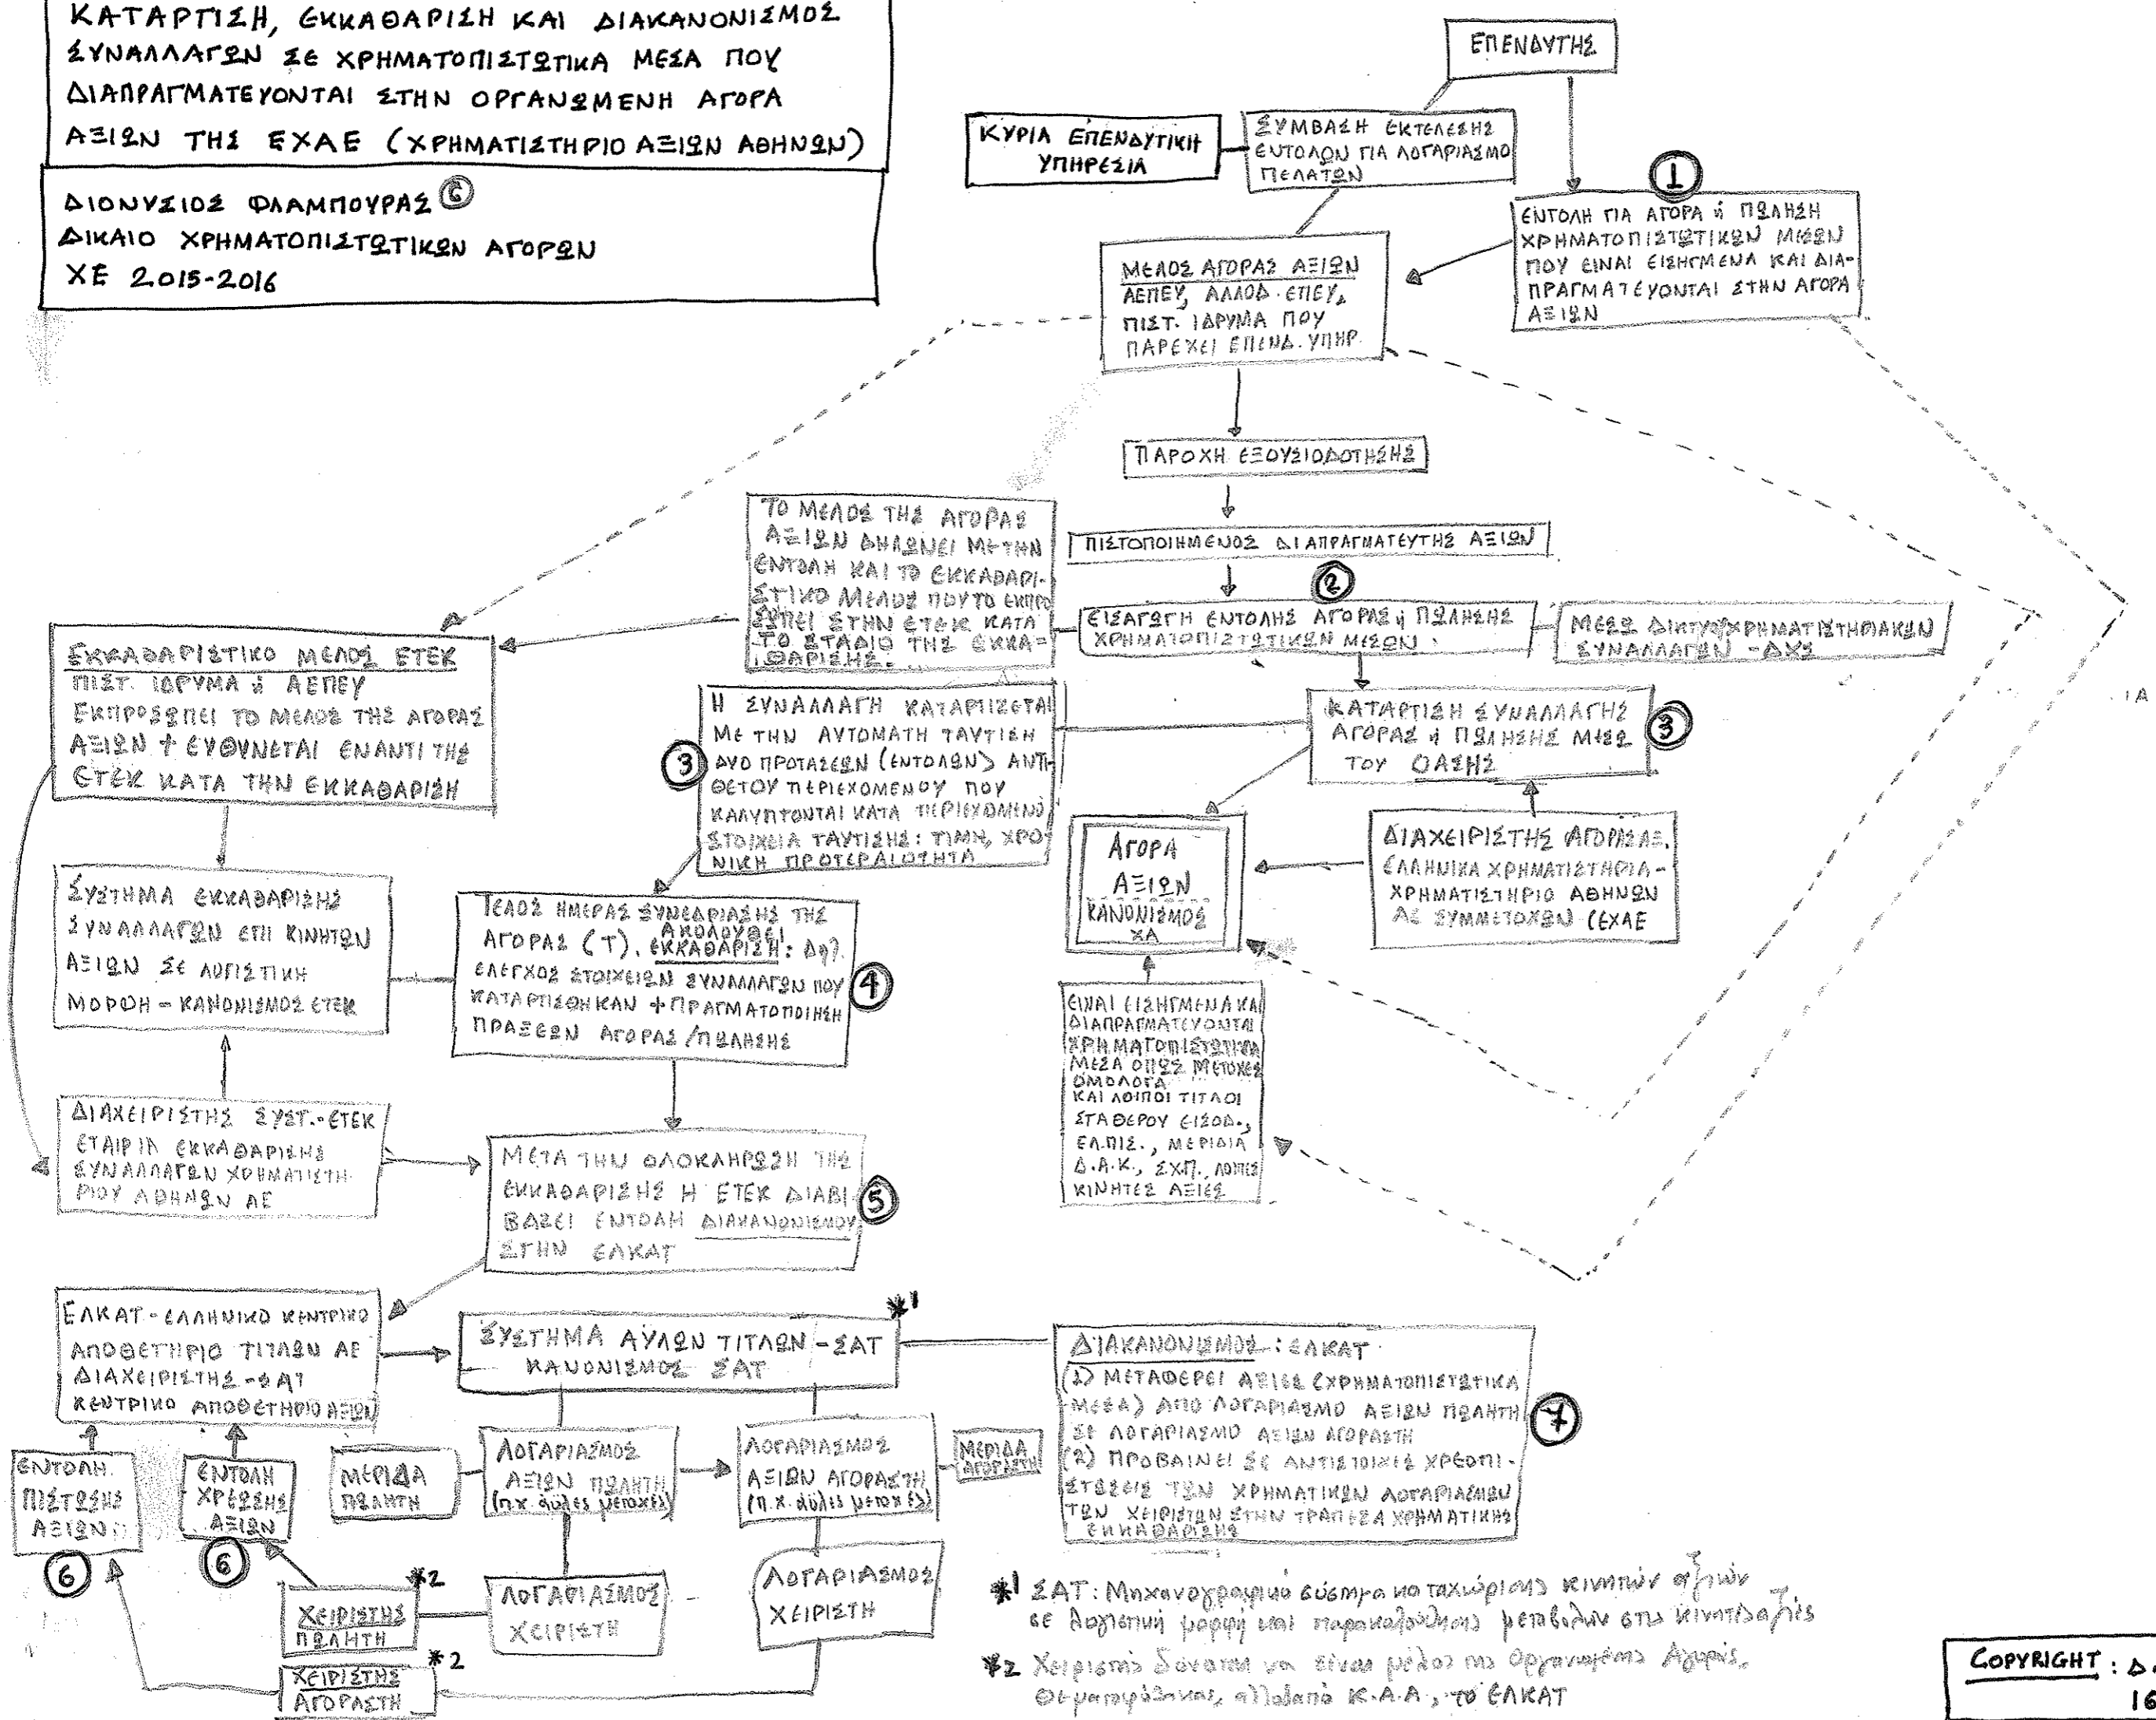 ΚΑΤΑΡΤΙΣΗ, ΕΚΚΑΘΑΡΙΣΗ ΚΑΙ ΔΙΑΚΑΝΟΝΙΣΜΟΣ
ΣΥΝΑΛΛΑΓΩΝ ΣΕ ΧΡΗΜΑΤΟΠΙΣΤΩΤΙΚΑ ΜΕΣΑ ΠΟΥ
ΔΙΑΠΡΑΓΜΑΤΕΥΟΝΤΑΙ ΣΤΗΝ ΟΡΓΑΝΩΜΕΝΗ ΑΓΟΡΑ
ΑΞΙΩΝ ΤΗΣ ΕΧΑΕ (ΧΡΗΜΑΤΙΣΤΗΡΙΟ ΑΞΙΩΝ ΑΘΗΝΩΝ)
ΔΙΟΝΥΣΙΟΣ ΦΛΑΜΠΟΥΡΑΣ ©
ΔΙΚΑΙΟ ΧΡΗΜΑΤΟΠΙΣΤΩΤΙΚΩΝ ΑΓΟΡΩΝ
ΧΕ 2015-2016
ΕΠΕΝΔΥΤΗΣ
ΚΥΡΙΑ ΕΠΕΝΔΥΤΙΚΗ
ΥΠΗΡΕΣΙΑ
ΣΥΜΒΑΣΗ ΕΚΤΕΛΕΣΗΣ
ΕΝΤΟΛΩΝ ΓΙΑ ΛΟΓΑΡΙΑΣΜΟ
ΠΕΛΑΤΩΝ
1
ΕΝΤΟΛΗ ΓΙΑ ΑΓΟΡΑ ή ΠΩΛΗΣΗ
ΧΡΗΜΑΤΟΠΙΣΤΩΤΙΚΩΝ ΜΕΣΩΝ
ΠΟΥ ΕΙΝΑΙ ΕΙΣΗΓΜΕΝΑ ΚΑΙ ΔΙΑ-
ΠΡΑΓΜΑΤΕΥΟΝΤΑΙ ΣΤΗΝ ΑΓΟΡΑ
ΑΞΙΩΝ
ΜΕΛΟΣ ΑΓΟΡΑΣ ΑΞΙΩΝ
ΑΕΠΕΥ, ΑΛΛΟΔ. ΕΠΕΥ,
ΠΙΣΤ. ΙΔΡΥΜΑ ΠΟΥ
ΠΑΡΕΧΕΙ ΕΠΕΝΔ. ΥΠΗΡ.
ΠΑΡΟΧΗ ΕΞΟΥΣΙΟΔΟΤΗΣΗΣ
ΠΙΣΤΟΠΟΙΗΜΕΝΟΣ ΔΙΑΠΡΑΓΜΑΤΕΥΤΗΣ ΑΞΙΩΝ
2
ΕΙΣΑΓΩΓΗ ΕΝΤΟΛΗΣ ΑΓΟΡΑΣ ή ΠΩΛΗΣΗΣ
ΧΡΗΜΑΤΟΠΙΣΤΩΤΙΚΩΝ ΜΕΣΩΝ
ΜΕΣΩ ΔΙΚΤΥΟΥ ΧΡΗΜΑΤΙΣΤΗΡΙΑΚΩΝ
ΣΥΝΑΛΛΑΓΩΝ - ΔΧΣ
ΤΟ ΜΕΛΟΣ ΤΗΣ ΑΓΟΡΑΣ
ΑΞΙΩΝ ΔΗΛΩΝΕΙ ΜΕ ΤΗΝ
ΕΝΤΟΛΗ ΚΑΙ ΤΟ ΕΚΚΑΘΑΡΙ-
ΣΤΙΚΟ ΜΕΛΟΣ ΠΟΥ ΤΟ ΕΚΠΡΟ
ΣΩΠΕΙ ΣΤΗΝ ΕΤΕΚ ΚΑΤΑ
ΤΟ ΣΤΑΔΙΟ ΤΗΣ ΕΚΚΑ-
ΘΑΡΙΣΗΣ.
ΕΚΚΑΘΑΡΙΣΤΙΚΟ ΜΕΛΟΣ ΕΤΕΚ
ΠΙΣΤ. ΙΔΡΥΜΑ ή ΑΕΠΕΥ
ΕΚΠΡΟΣΩΠΕΙ ΤΟ ΜΕΛΟΣ ΤΗΣ ΑΓΟΡΑΣ
ΑΞΙΩΝ + ΕΥΘΥΝΕΤΑΙ ΕΝΑΝΤΙ ΤΗΣ
ΕΤΕΚ ΚΑΤΑ ΤΗΝ ΕΚΚΑΘΑΡΙΣΗ
3
Η ΣΥΝΑΛΛΑΓΗ ΚΑΤΑΡΤΙΖΕΤΑΙ
ΜΕ ΤΗΝ ΑΥΤΟΜΑΤΗ ΤΑΥΤΙΣΗ
ΔΥΟ ΠΡΟΤΑΣΕΩΝ (ΕΝΤΟΛΩΝ) ΑΝΤΙ-
ΘΕΤΟΥ ΠΕΡΙΕΧΟΜΕΝΟΥ ΠΟΥ
ΚΑΛΥΠΤΟΝΤΑΙ ΚΑΤΑ ΠΕΡΙΕΧΟΜΕΝΟ
ΣΤΟΙΧΕΙΑ ΤΑΥΤΙΣΗΣ: ΤΙΜΗ, ΧΡΟ-
ΝΙΚΗ ΠΡΟΤΕΡΑΙΟΤΗΤΑ
ΚΑΤΑΡΤΙΣΗ ΣΥΝΑΛΛΑΓΗΣ
ΑΓΟΡΑΣ ή ΠΩΛΗΣΗΣ ΜΕΣΩ
ΤΟΥ ΟΑΣΗΣ
3
ΑΓΟΡΑ
ΑΞΙΩΝ
ΚΑΝΟΝΙΣΜΟΣ
ΧΑ
ΔΙΑΧΕΙΡΙΣΤΗΣ ΑΓΟΡΑΣ ΑΞ.
ΕΛΛΗΝΙΚΑ ΧΡΗΜΑΤΙΣΤΗΡΙΑ-
ΧΡΗΜΑΤΙΣΤΗΡΙΟ ΑΘΗΝΩΝ
ΑΕ ΣΥΜΜΕΤΟΧΩΝ (ΕΧΑΕ
ΣΥΣΤΗΜΑ ΕΚΚΑΘΑΡΙΣΗΣ
ΣΥΝΑΛΛΑΓΩΝ ΕΠΙ ΚΙΝΗΤΩΝ
ΑΞΙΩΝ ΣΕ ΛΟΓΙΣΤΙΚΗ
ΜΟΡΦΗ - ΚΑΝΟΝΙΣΜΟΣ ΕΤΕΚ
ΤΕΛΟΣ ΗΜΕΡΑΣ ΣΥΝΕΔΡΙΑΣΗΣ ΤΗΣ
ΑΚΟΛΟΥΘΕΙ
ΑΓΟΡΑΣ (Τ). ΕΚΚΑΘΑΡΙΣΗ: Δηλ.
ΕΛΕΓΧΟΣ ΣΤΟΙΧΕΙΩΝ ΣΥΝΑΛΛΑΓΩΝ ΠΟΥ
ΚΑΤΑΡΤΙΣΘΗΚΑΝ + ΠΡΑΓΜΑΤΟΠΟΙΗΣΗ
ΠΡΑΞΕΩΝ ΑΓΟΡΑΣ/ΠΩΛΗΣΗΣ
4
ΕΙΝΑΙ ΕΙΣΗΓΜΕΝΑ ΚΑΙ
ΔΙΑΠΡΑΓΜΑΤΕΥΟΝΤΑΙ
ΧΡΗΜΑΤΟΠΙΣΤΩΤΙΚΑ
ΜΕΣΑ ΟΠΩΣ ΜΕΤΟΧΕΣ
ΟΜΟΛΟΓΑ
ΚΑΙ ΛΟΙΠΟΙ ΤΙΤΛΟΙ
ΣΤΑΘΕΡΟΥ ΕΙΣΟΔ.,
ΕΛ.ΠΙΣ., ΜΕΡΙΔΙΑ
Δ.Α.Κ., Σ.Χ.Π. ΛΟΙΠΕΣ
ΚΙΝΗΤΕΣ ΑΞΙΕΣ
ΔΙΑΧΕΙΡΙΣΤΗΣ ΣΥΣΤ.-ΕΤΕΚ
ΕΤΑΙΡΙΑ ΕΚΚΑΘΑΡΙΣΗΣ
ΣΥΝΑΛΛΑΓΩΝ ΧΡΗΜΑΤΙΣΤΗ-
ΡΙΟΥ ΑΘΗΝΩΝ ΑΕ
ΜΕΤΑ ΤΗΝ ΟΛΟΚΛΗΡΩΣΗ ΤΗΣ
ΕΚΚΑΘΑΡΙΣΗΣ Η ΕΤΕΚ ΔΙΑΒΙ-
ΒΑΖΕΙ ΕΝΤΟΛΗ ΔΙΑΚΑΝΟΝΙΣΜΟΥ
ΣΤΗΝ ΕΛΚΑΤ
5
ΕΛΚΑΤ - ΕΛΛΗΝΙΚΟ ΚΕΝΤΡΙΚΟ
ΑΠΟΘΕΤΗΡΙΟ ΤΙΤΛΩΝ ΑΕ
ΔΙΑΧΕΙΡΙΣΤΗΣ - ΣΑΤ
ΚΕΝΤΡΙΚΟ ΑΠΟΘΕΤΗΡΙΟ ΑΞΙΩΝ
*1
ΣΥΣΤΗΜΑ ΑΥΛΩΝ ΤΙΤΛΩΝ - ΣΑΤ
ΚΑΝΟΝΙΣΜΟΣ ΣΑΤ
ΔΙΑΚΑΝΟΝΙΣΜΟΣ: ΕΛΚΑΤ
(1) ΜΕΤΑΦΕΡΕΙ ΑΞΙΕΣ (ΧΡΗΜΑΤΟΠΙΣΤΩΤΙΚΑ
ΜΕΣΑ) ΑΠΟ ΛΟΓΑΡΙΑΣΜΟ ΑΞΙΩΝ ΠΩΛΗΤΗ
ΣΕ ΛΟΓΑΡΙΑΣΜΟ ΑΞΙΩΝ ΑΓΟΡΑΣΤΗ
(2) ΠΡΟΒΑΙΝΕΙ ΣΕ ΑΝΤΙΣΤΟΙΧΕΣ ΧΡΕΟΠΙ-
ΣΤΩΣΕΙΣ ΤΩΝ ΧΡΗΜΑΤΙΚΩΝ ΛΟΓΑΡΙΑΣΜΩΝ
ΤΩΝ ΧΕΙΡΙΣΤΩΝ ΣΤΗΝ ΤΡΑΠΕΖΑ ΧΡΗΜΑΤΙΚΗΣ
ΕΚΚΑΘΑΡΙΣΗΣ
7
ΕΝΤΟΛΗ
ΠΙΣΤΩΣΗΣ
ΑΞΙΩΝ
6
ΕΝΤΟΛΗ
ΧΡΕΩΣΗΣ
ΑΞΙΩΝ
6
ΜΕΡΙΔΑ
ΠΩΛΗΤΗ
ΛΟΓΑΡΙΑΣΜΟΣ
ΑΞΙΩΝ ΠΩΛΗΤΗ
(π.χ. άϋλες μετοχές)
ΛΟΓΑΡΙΑΣΜΟΣ
ΑΞΙΩΝ ΑΓΟΡΑΣΤΗ
(π.χ. άϋλες μετοχές)
ΜΕΡΙΔΑ
ΑΓΟΡΑΣΤΗ
*2
ΧΕΙΡΙΣΤΗΣ
ΠΩΛΗΤΗ
ΛΟΓΑΡΙΑΣΜΟΣ
ΧΕΙΡΙΣΤΗ
ΛΟΓΑΡΙΑΣΜΟΣ
ΧΕΙΡΙΣΤΗ
*2
ΧΕΙΡΙΣΤΗΣ
ΑΓΟΡΑΣΤΗ
*1 ΣΑΤ: Μηχανογραφικό σύστημα καταχώρισης κινητών αξιών
σε λογιστική μορφή και παρακολούθησης μεταβολών στις κινητές αξίες
*2 Χειριστής δύναται να είναι μέλος της Οργανωμένης Αγοράς,
Θεματοφύλακας, αλλοδαπό Κ.Α.Α., το ΕΛΚΑΤ
COPYRIGHT: Δ.
16